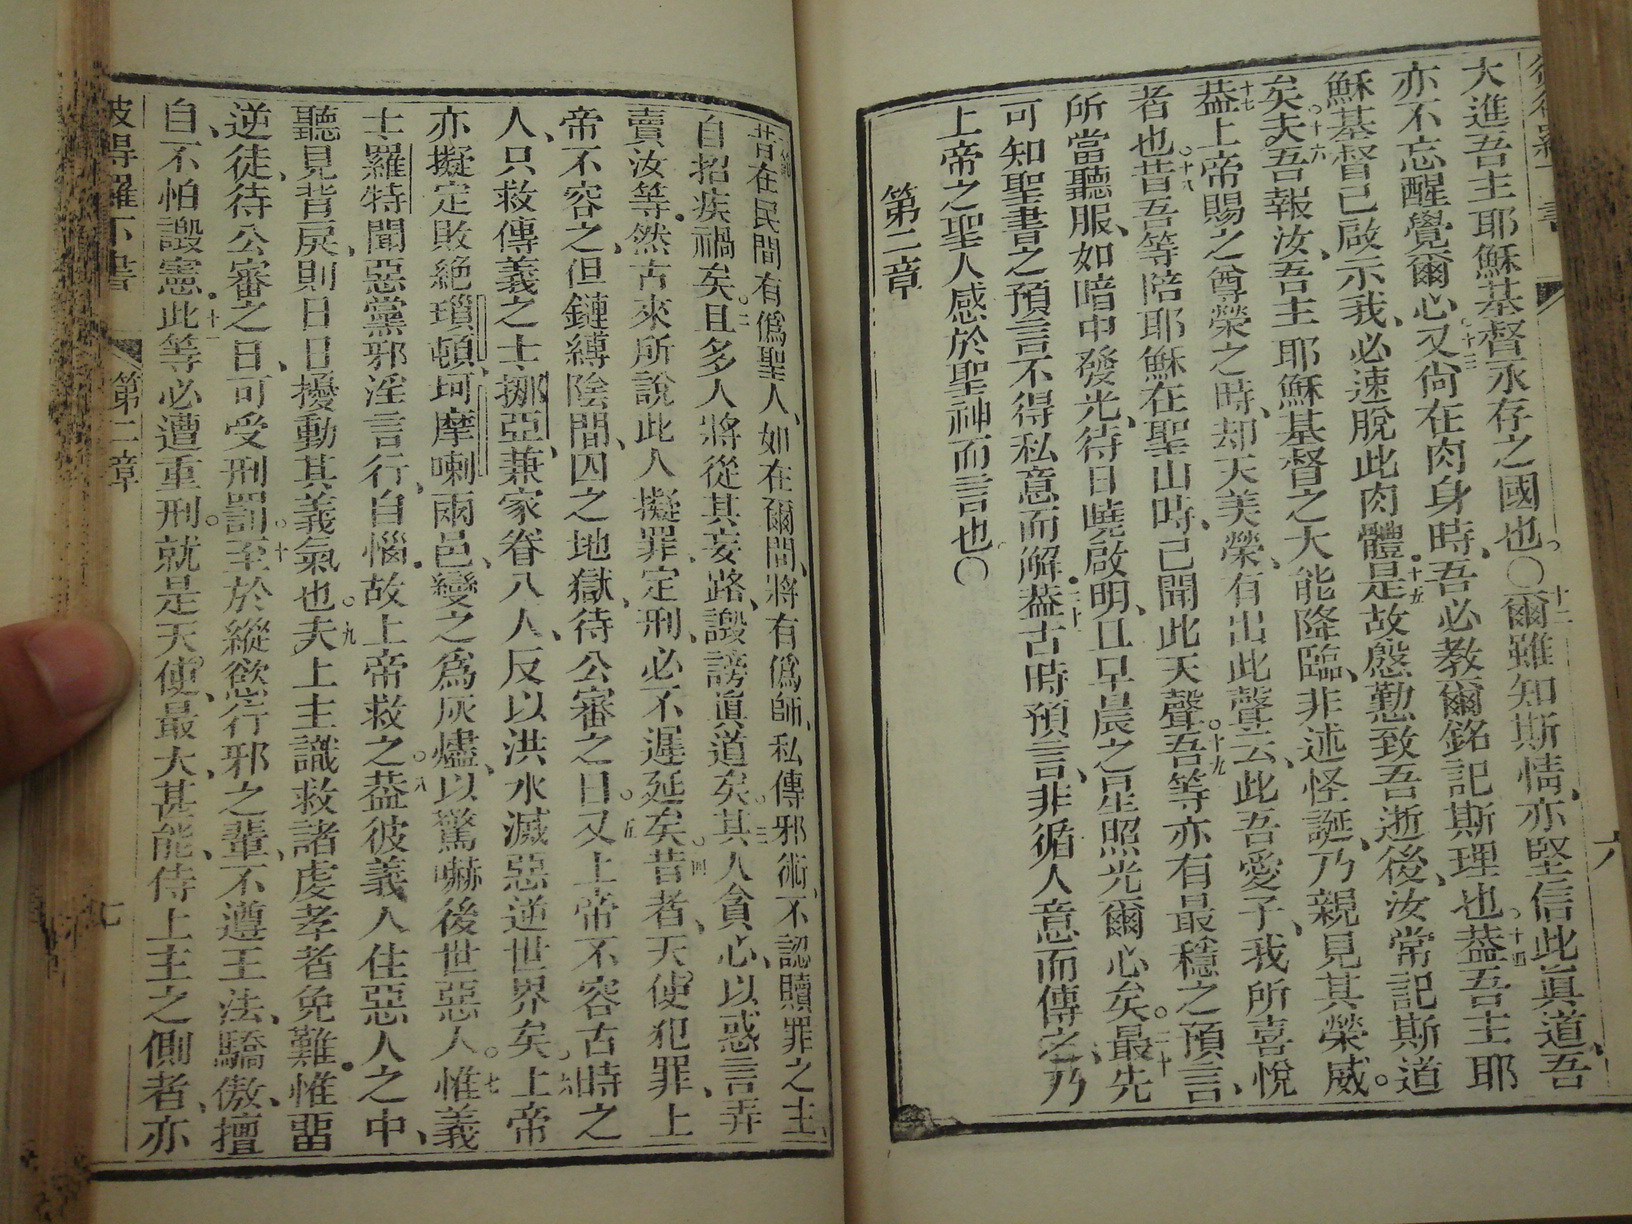 大進吾主耶穌基督永存之國也。〇十二爾雖知斯情、亦堅信此眞道、吾
亦不忘醒覺爾心、十三又尙在肉身時、吾必教爾銘記斯理也。十四葢吾主耶
穌基督已啟示我、必速脫此肉體、十五是故慇懃致吾逝後、汝常記斯道
矣。十六夫吾報汝、吾主耶穌基督之大能降臨、非述怪誕、乃親見其榮威。
十七葢上帝賜之尊榮之時、却天美榮、有出此聲云、此吾愛子、我所喜悅
者也。十八昔吾等陪耶穌在聖山時、已聞此天聲。十九吾等亦有最穩之預言、
所當聽服、如暗中發光、待日曉啟明、且早晨之星照光爾心矣。二十最先
可知聖書之預言不得私意而解、二十一葢古時預言、非循人意而傳之、乃
上帝之聖人感於聖神而言也〇
第二章
六
昔在民間有僞聖人、如在爾間、將有僞師、私傳邪術、不認贖罪之主、
自招疾禍矣。二且多人將從其妄路、譭謗眞道矣。三其人貪心、以惑言弄
賣汝等、然古來所說此人擬罪、定刑、必不遲延矣。四昔者、天使犯罪、上
帝不容之、但鏈縛陰間、囚之地獄、待公審之日。五又上帝不容古時之
人、只救傳義之士挪亞、兼家眷八人、反以洪水滅惡逆世界矣。六上帝
亦擬定敗絕瑣頓、坷摩喇兩邑、變之爲灰燼、以驚嚇後世惡人。七惟義
士羅特聞惡黨邪淫言行、自惱、故上帝救之。八葢彼義人住惡人之中、
聽見背戾、則日日擾動其義氣也。九夫上主識救諸虔孝者免難、惟留
逆徒、待公審之日、可受刑罰。十至於縱慾行邪之輩、不遵王法、驕傲、擅
自、不怕譭憲、十一此等必遭重刑。就是天使、最大、甚能、侍上主之側者、亦
彼得羅下書 第二章 七